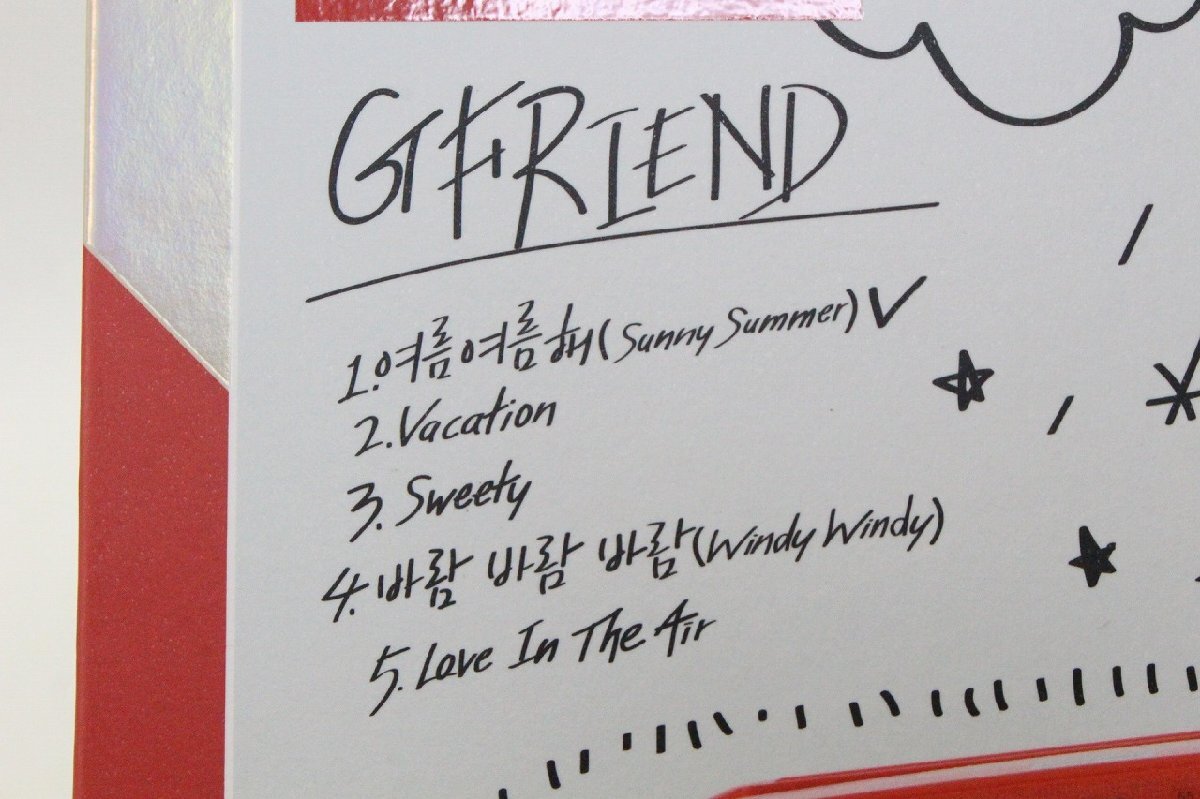 GFRIEND
1.여름여름해(Sunny Summer)
2.Vacation
3. Sweety
4.바람 바람 바람(Windy Windy)
5.Love In The Air